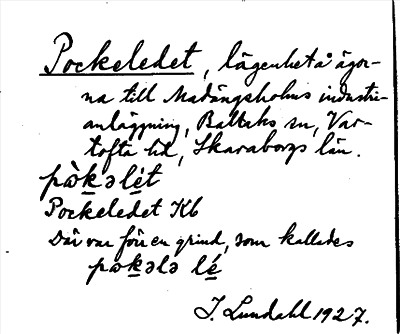 Pockeledet, lägenhet å ägor-
na till Madängsholms industri-
anläggning, Baltaks sn, Var-
tofta hd, Skaraborgs län.
pòkəlét
Pockeledet Kb
Där var förr en grind, som kallades
pokələ lé
J. Lundahl 1927.